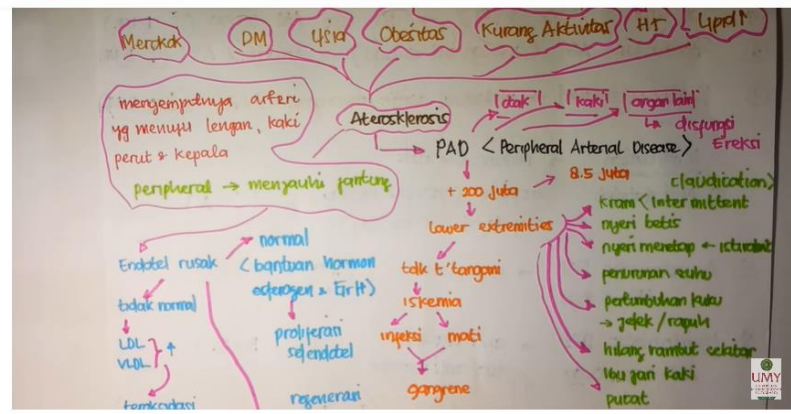 Merokok
DM
Usia
Obesitas
Kurang Aktivitas
HT
Lipid↑
menyempitnya arteri
yg menuju lengan, kaki
perut & kepala
peripheral → menjauhi jantung
Aterosklerosis
otak
kaki
organ lain
↳ disfungsi
Ereksi
PAD < Peripheral Arterial Disease >
+ 200 juta → 8.5 juta
lower extremities
tdk t'tangani
iskemia
infeksi
mati
gangrene
claudication>
kram <Intermittent
nyeri betis
nyeri menetap ← istirahat
penurunan suhu
pertumbuhan kuku
→ jelek / rapuh
hilang rambut sekitar
ibu jari kaki
pucat
Endotel rusak
normal
<bantuan hormon
esterogen & ErH>
proliferasi
sel endotel
regenerasi
tidak normal
LDL
VLDL
↑
teroksidasi
UMY